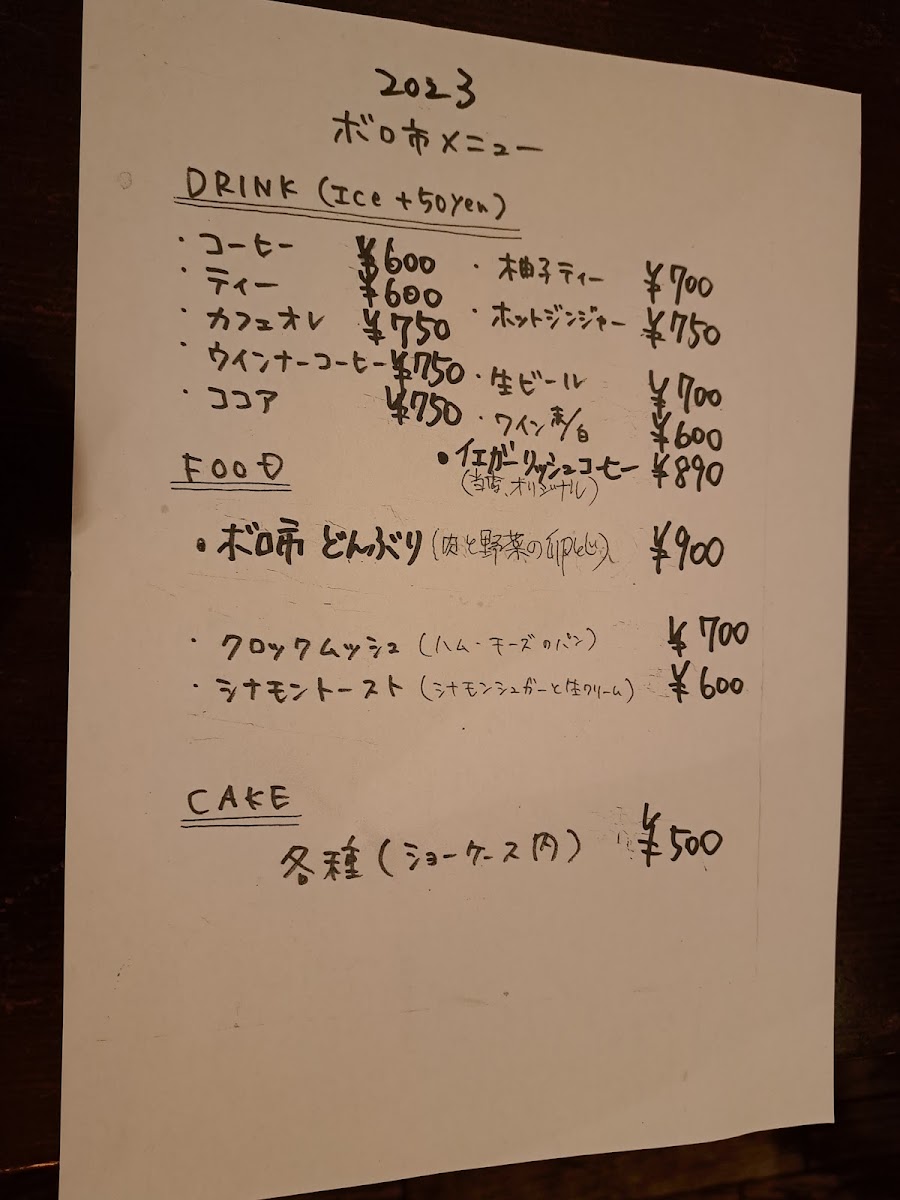 2023
ボロ市メニュー
DRINK (Ice +50yen)
・コーヒー ¥600
・ティー ¥600
・カフェオレ ¥750
・ウインナーコーヒー ¥750
・ココア ¥750
・柚子ティー ¥700
・ホットジンジャー ¥750
・生ビール ¥700
・ワイン赤/白 ¥600
・イエガーリッシュコーヒー ¥890
(当店、オリジナル)
FOOD
・ボロ市どんぶり (肉と野菜の卵とじ) ¥900
・クロックムッシュ (ハム・チーズのパン) ¥700
・シナモントースト (シナモンシュガーと生クリーム) ¥600
CAKE
各種(ショーケース内) ¥500